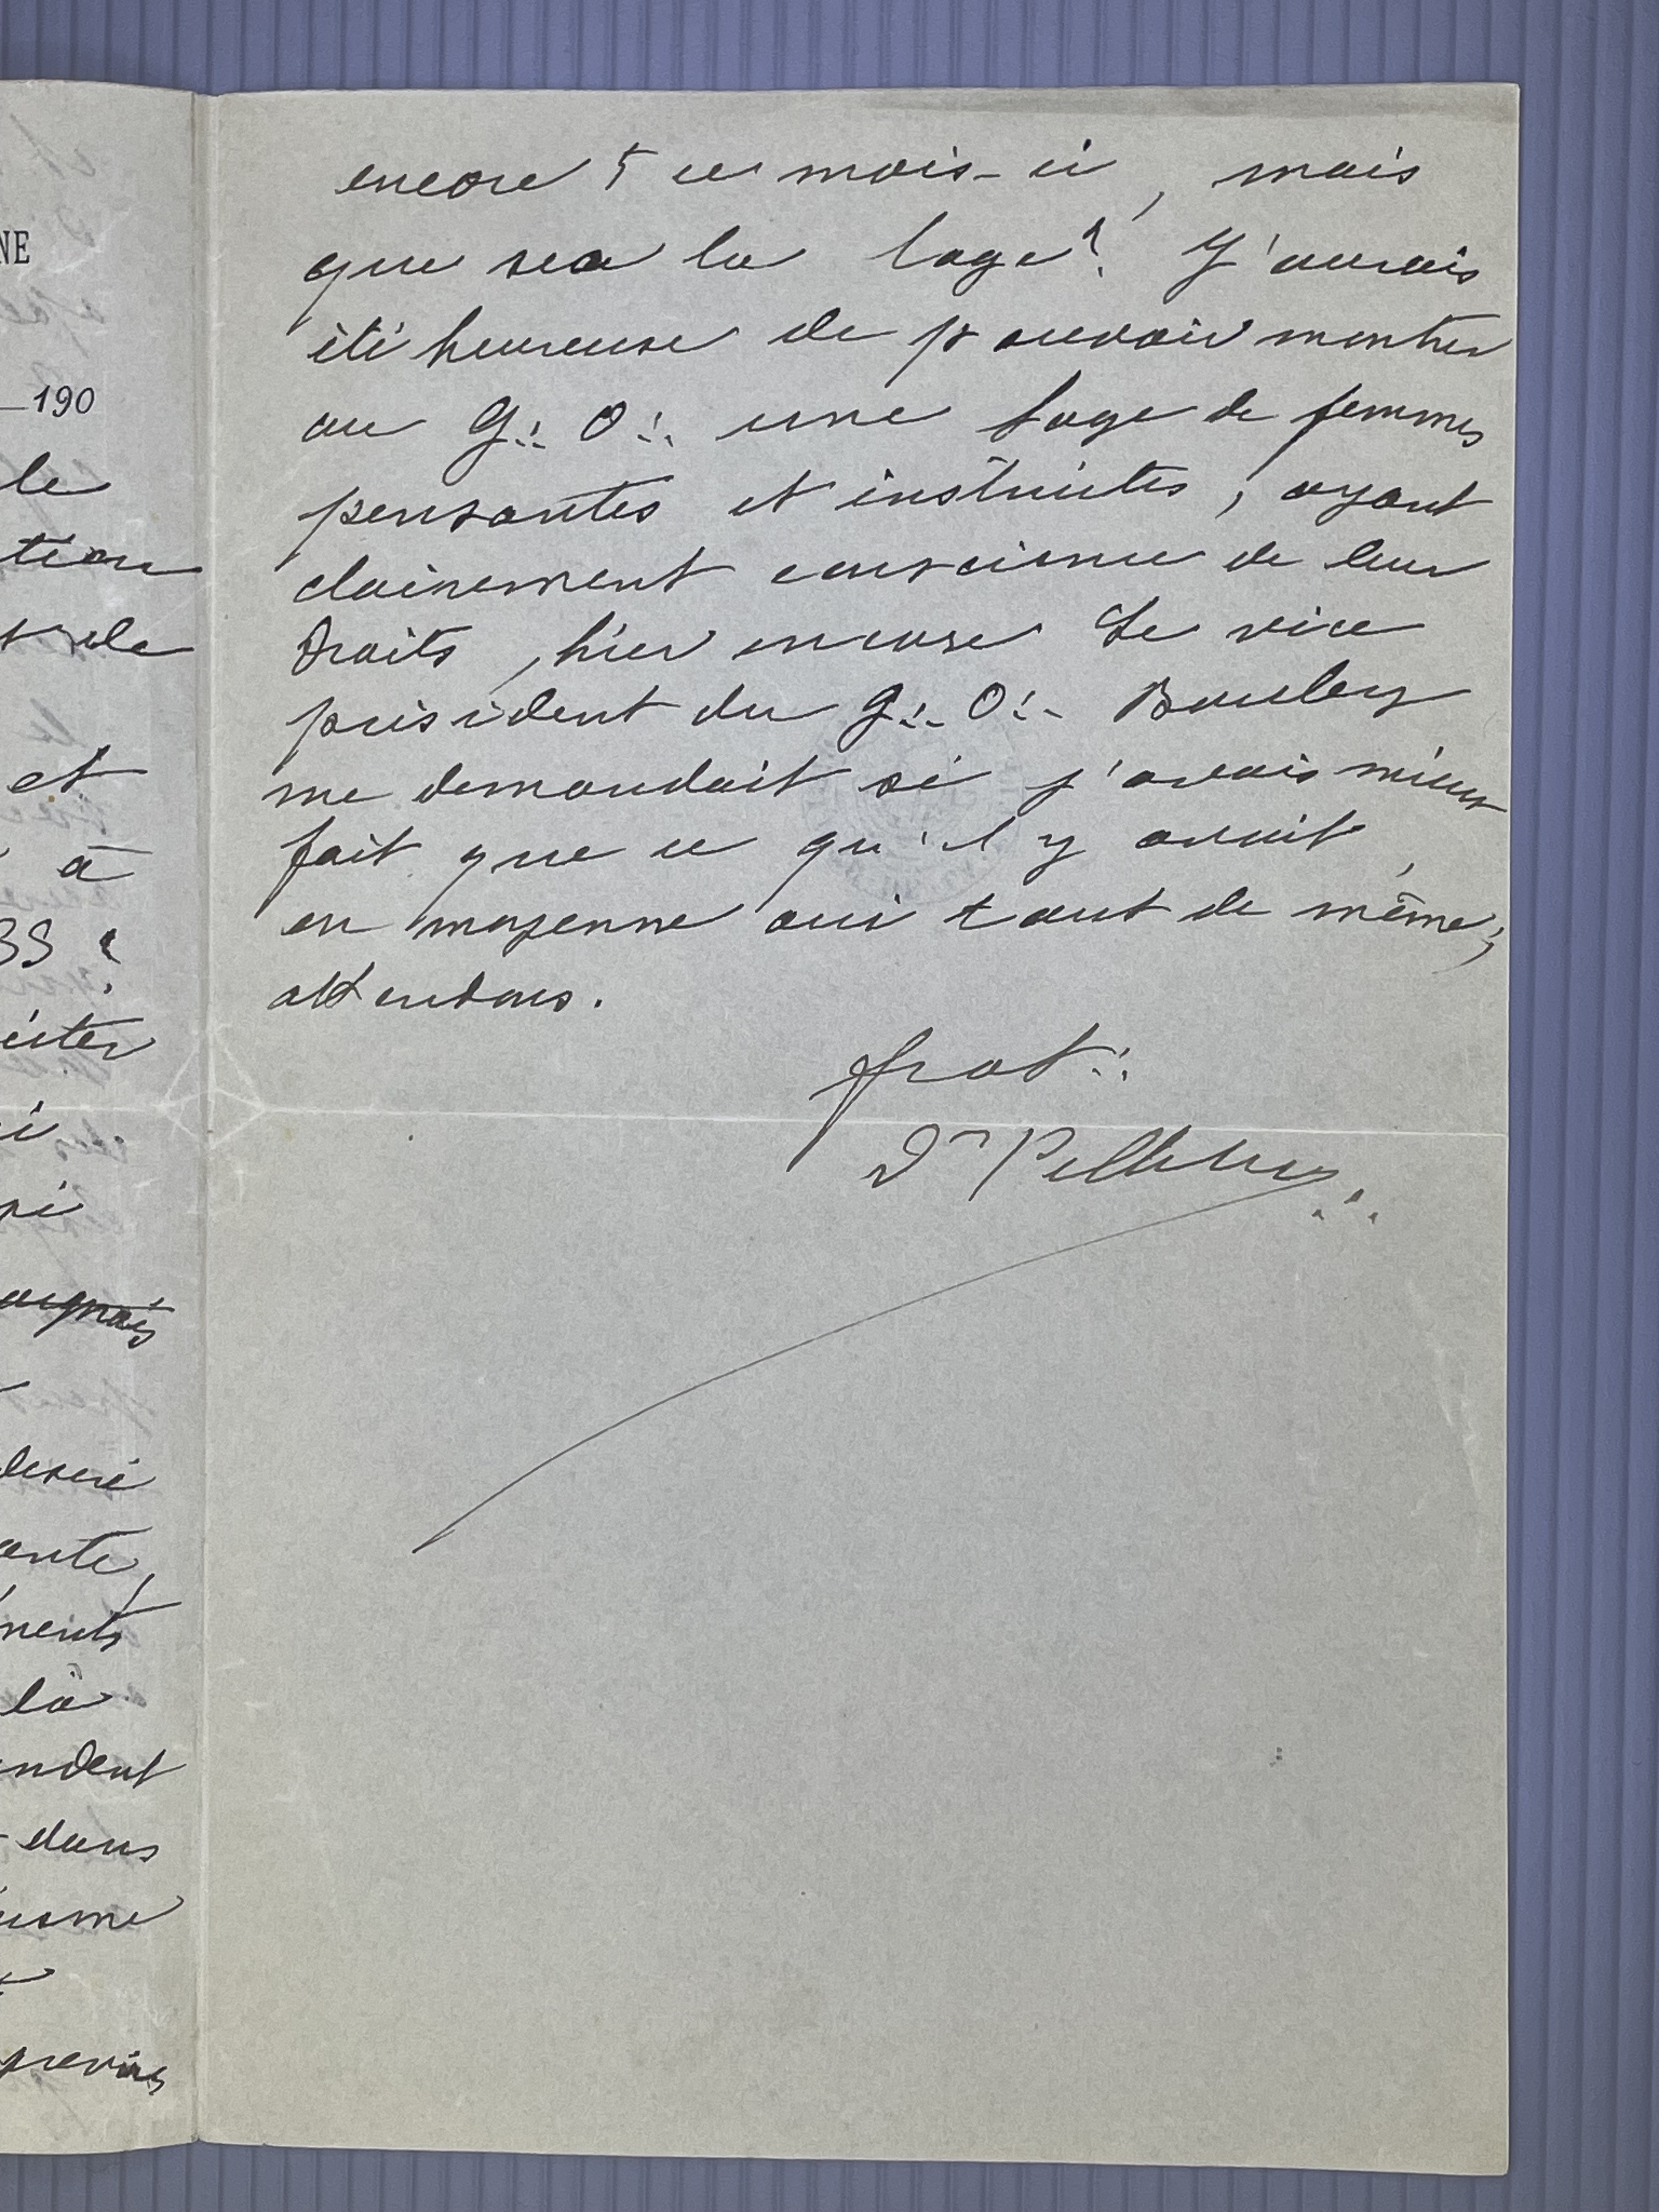 NE
190
le
tion
de
et
à
SS ?
i
si
ente,
nents
là
ndent
dans
isme
encore 5 ce mois-ci, mais
que sera la loge? J'aurais
été heureuse de pouvoir montrer
au G∴ O∴ une loge de femmes
pensantes et instruites, ayant
clairement conscience de leur
droits, hier encore Le vice
président du G∴ O∴ Bouley
me demandait si j'avais mieux
fait que ce qu'il y avait,
en moyenne oui tout de même;
attendons.
frat∴
Dr Pelletier∴